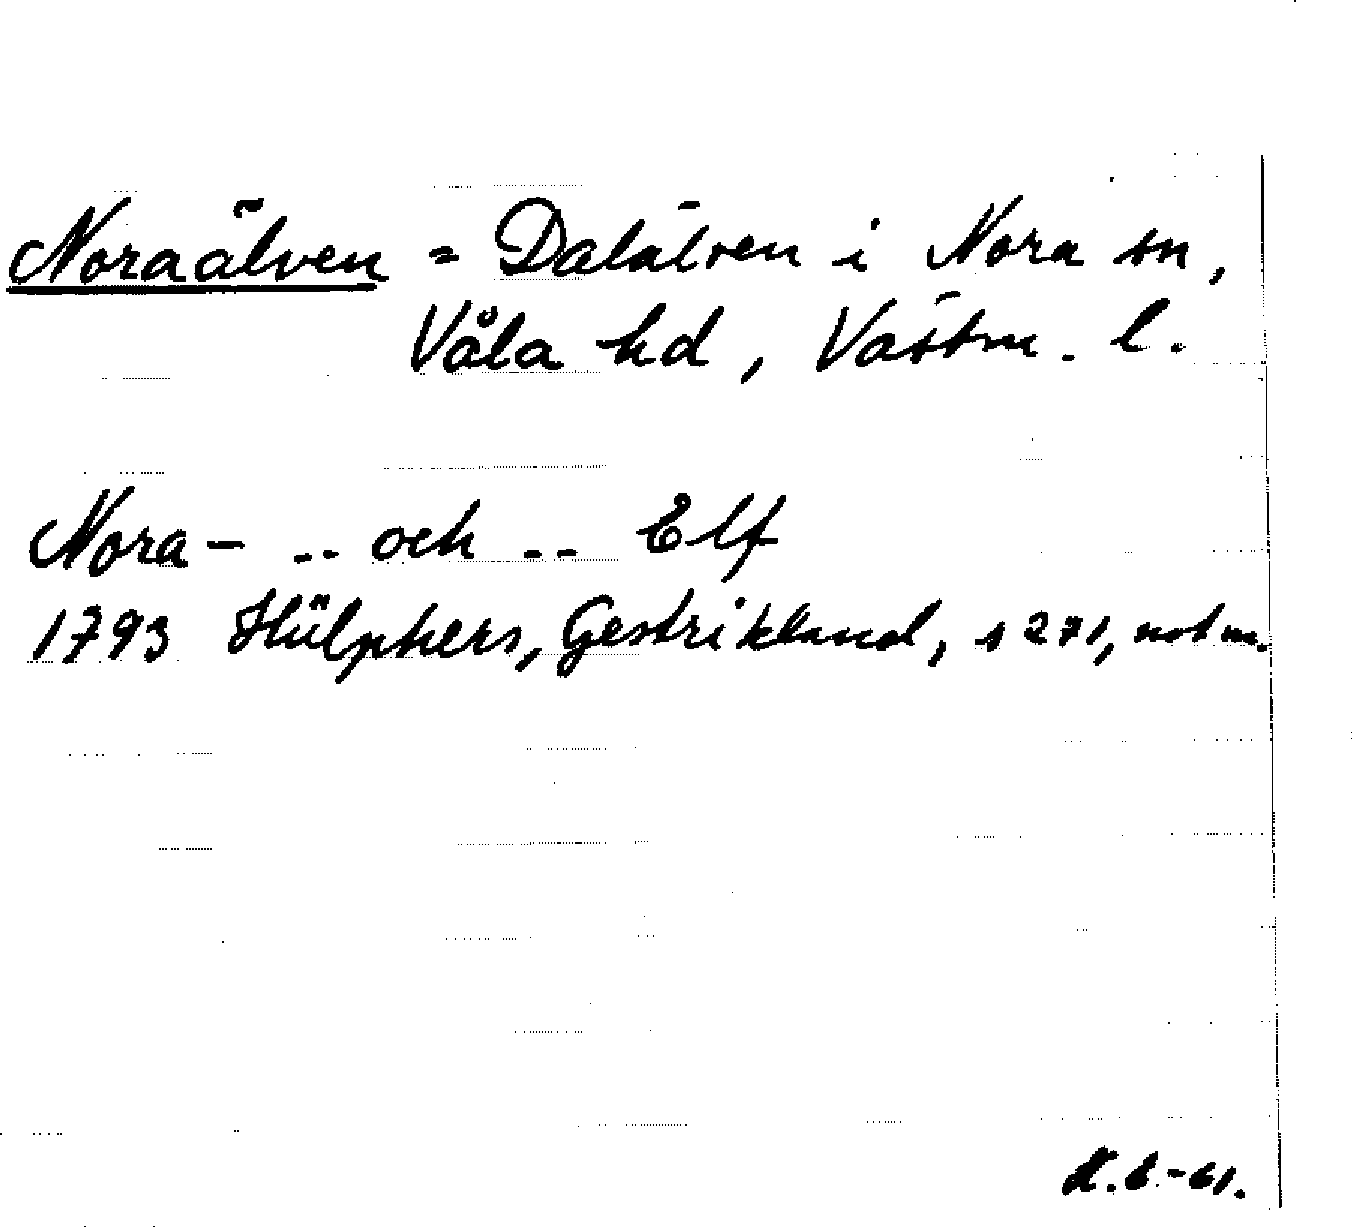 Noraälven = Dalälven i Nora sn,
Våla hd, Västm. l.
Nora- -- och -- Elf
1793 Hülphers, Gestrikland, s 271, not m.
K.B-61.